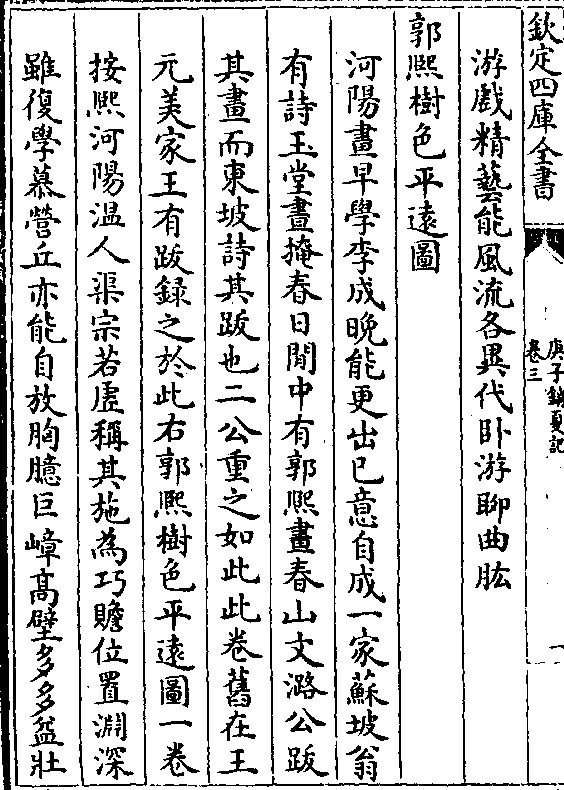 欽定四庫全書
庚子銷夏記
卷三
一
游戲精藝能風流各異代卧游聊曲肱
郭熙樹色平遠圖
河陽畫早學李成晚能更出已意自成一家蘇坡翁
有詩玉堂晝掩春日閒中有郭熙畫春山文潞公跋
其畫而東坡詩其跋也二公重之如此此卷舊在王
元美家王有跋録之於此右郭熙樹色平遠圖一卷
按熙河陽温人渠宗若虚稱其施為巧贍位置淵深
雖復學慕營丘亦能自放胸臆巨嶂髙壁多多益壯